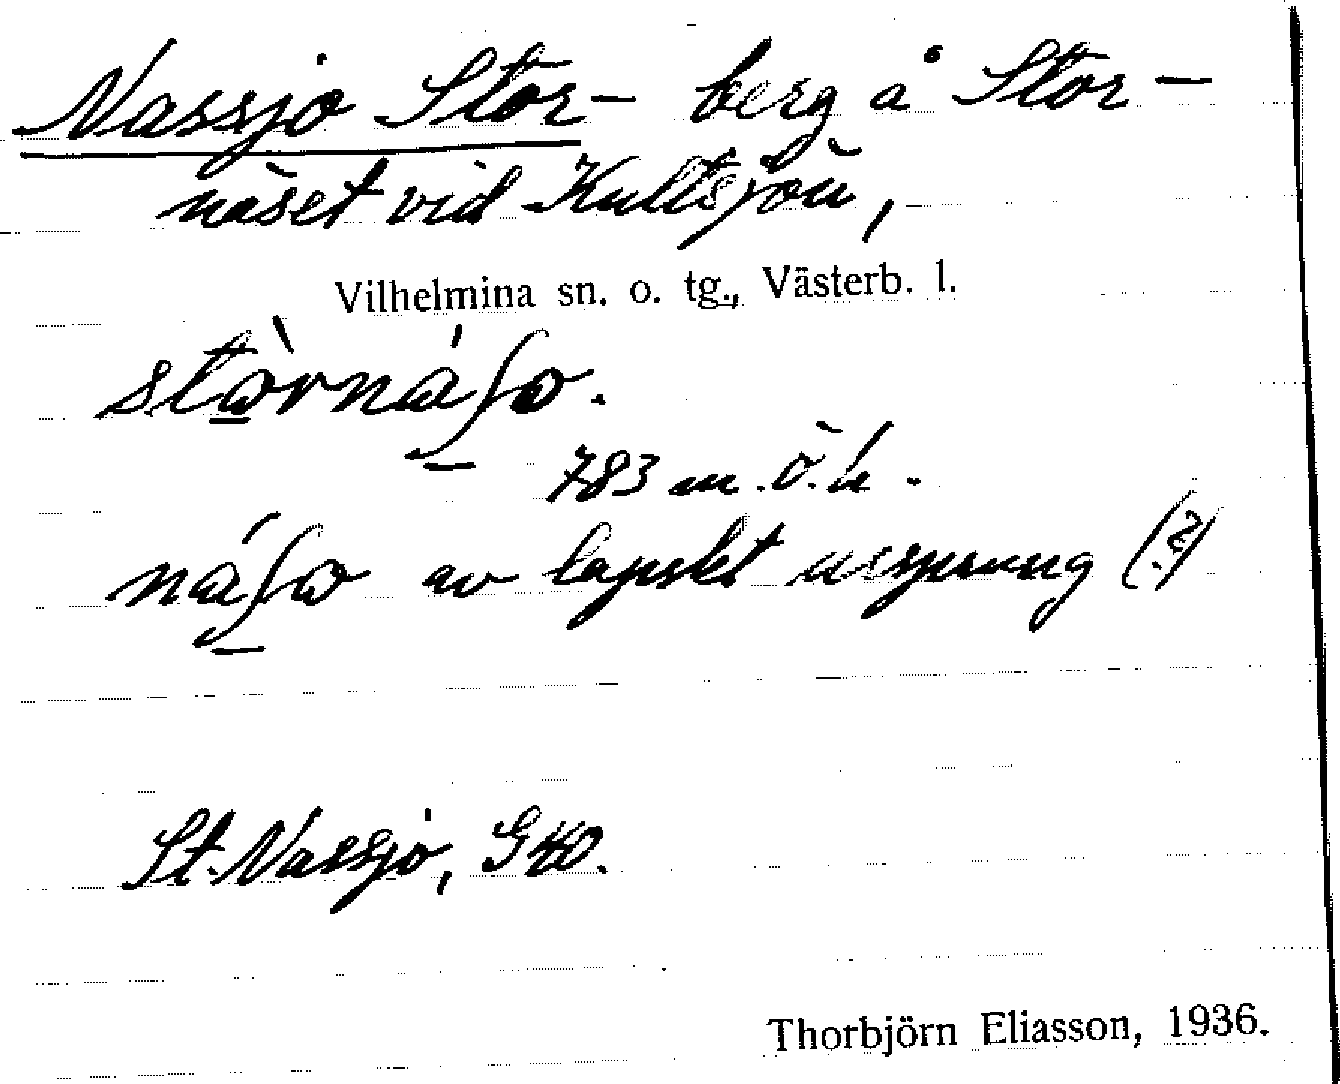 Nassjo Stor- berg å Stor-
näset vid Kultsjön,
Vilhelmina sn. o. tg., Västerb. l.
stòrnáʃo.
783 m.ö.h.
náʃo av lapskt ursprung (?)
St. Nassjo, GKO.
Thorbjörn Eliasson, 1936.